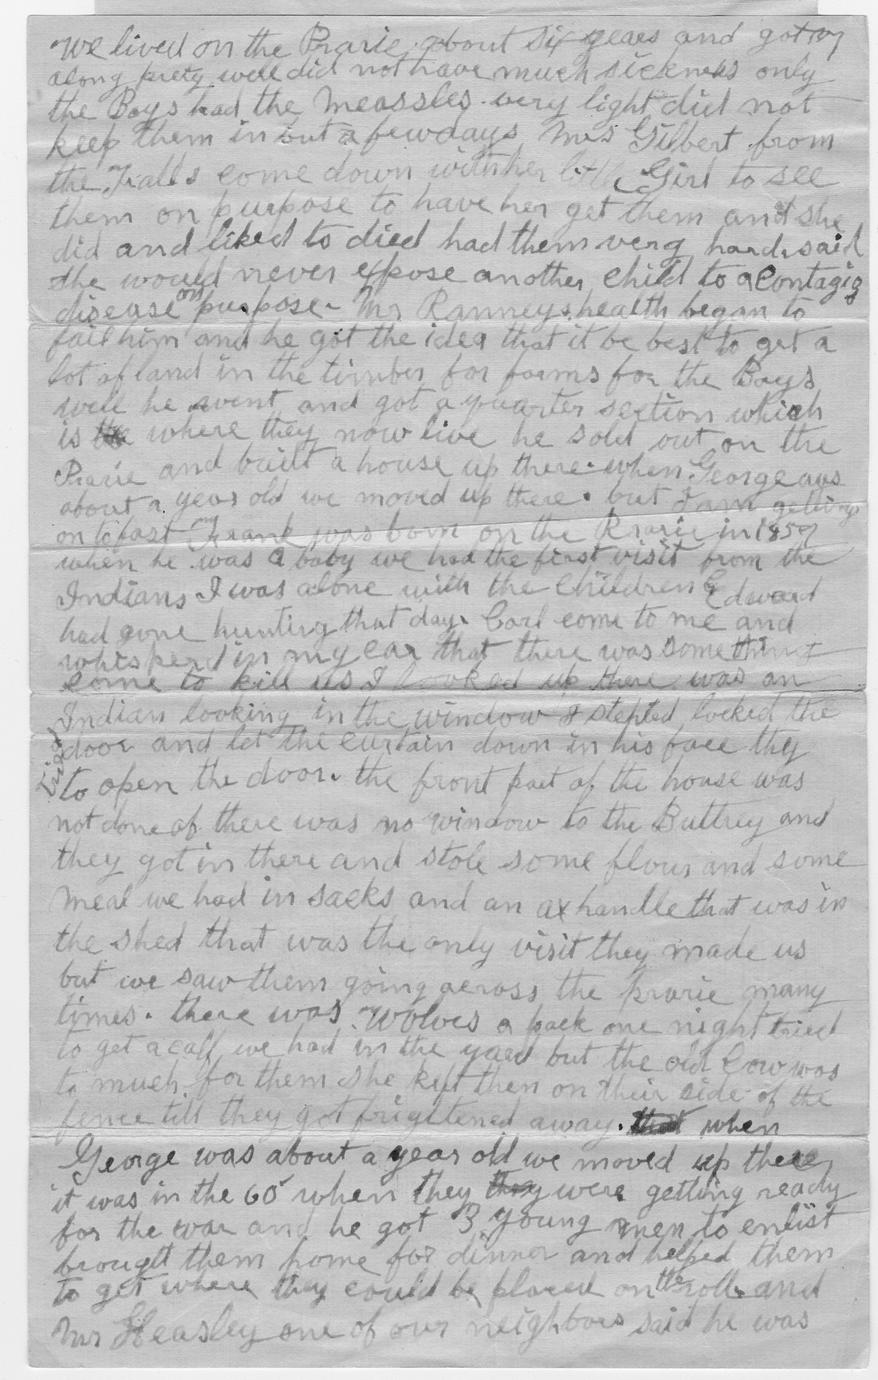 We lived on the Prarie about six years and got
along prety well did not have much sickness only
the Boys had the Meassles very light did not
keep them in but a few days Mrs Gilbert from
the Falls come down with her little Girl to see
them on purpose to have her get them and she
did and liked to died had them very hard said
she would never expose another child to a Contagio
disease on purpose - Mr Ranneys health began to
fail him and he got the idea that it be best to get a
lot of land in the timber for farms for the Boys
well he went and got a quarter section which
is where they now live he sold out on the
Prarie and built a house up there. when George
about a year old we moved up there. but I am getting
on to fast Frank was born on the Prarie in 1857
when he was a baby we had the first visit from the
Indians I was alone with the Children Edward
had gone hunting that day. Carl come to me and
whisperd in my ear that there was something
come to kill us I looked up there was an
Indian looking in the window I stepted locked the
door and let the curtain down in his face they
tried to open the door. the front part of the house was
not done of there was no window to the Buttrey and
they got in there and stole some flour and some
meal we had in sacks and an ax handle that was in
the shed that was the only visit they made us
but we saw them going across the prarie many
times. there was Wolves a pack one night tried
to get a calf we had in the yard but the old Cow was
to much for them she kept them on their side of the
fence till they got frightened away. that when
George was about a year old we moved up there
it was in the 60 when they they were getting ready
for the war and he got 3 young men to enlist
brought them home for dinner and helped them
to get where they could be placed on the roll. and
Mr Heasley one of our neighbors said he was